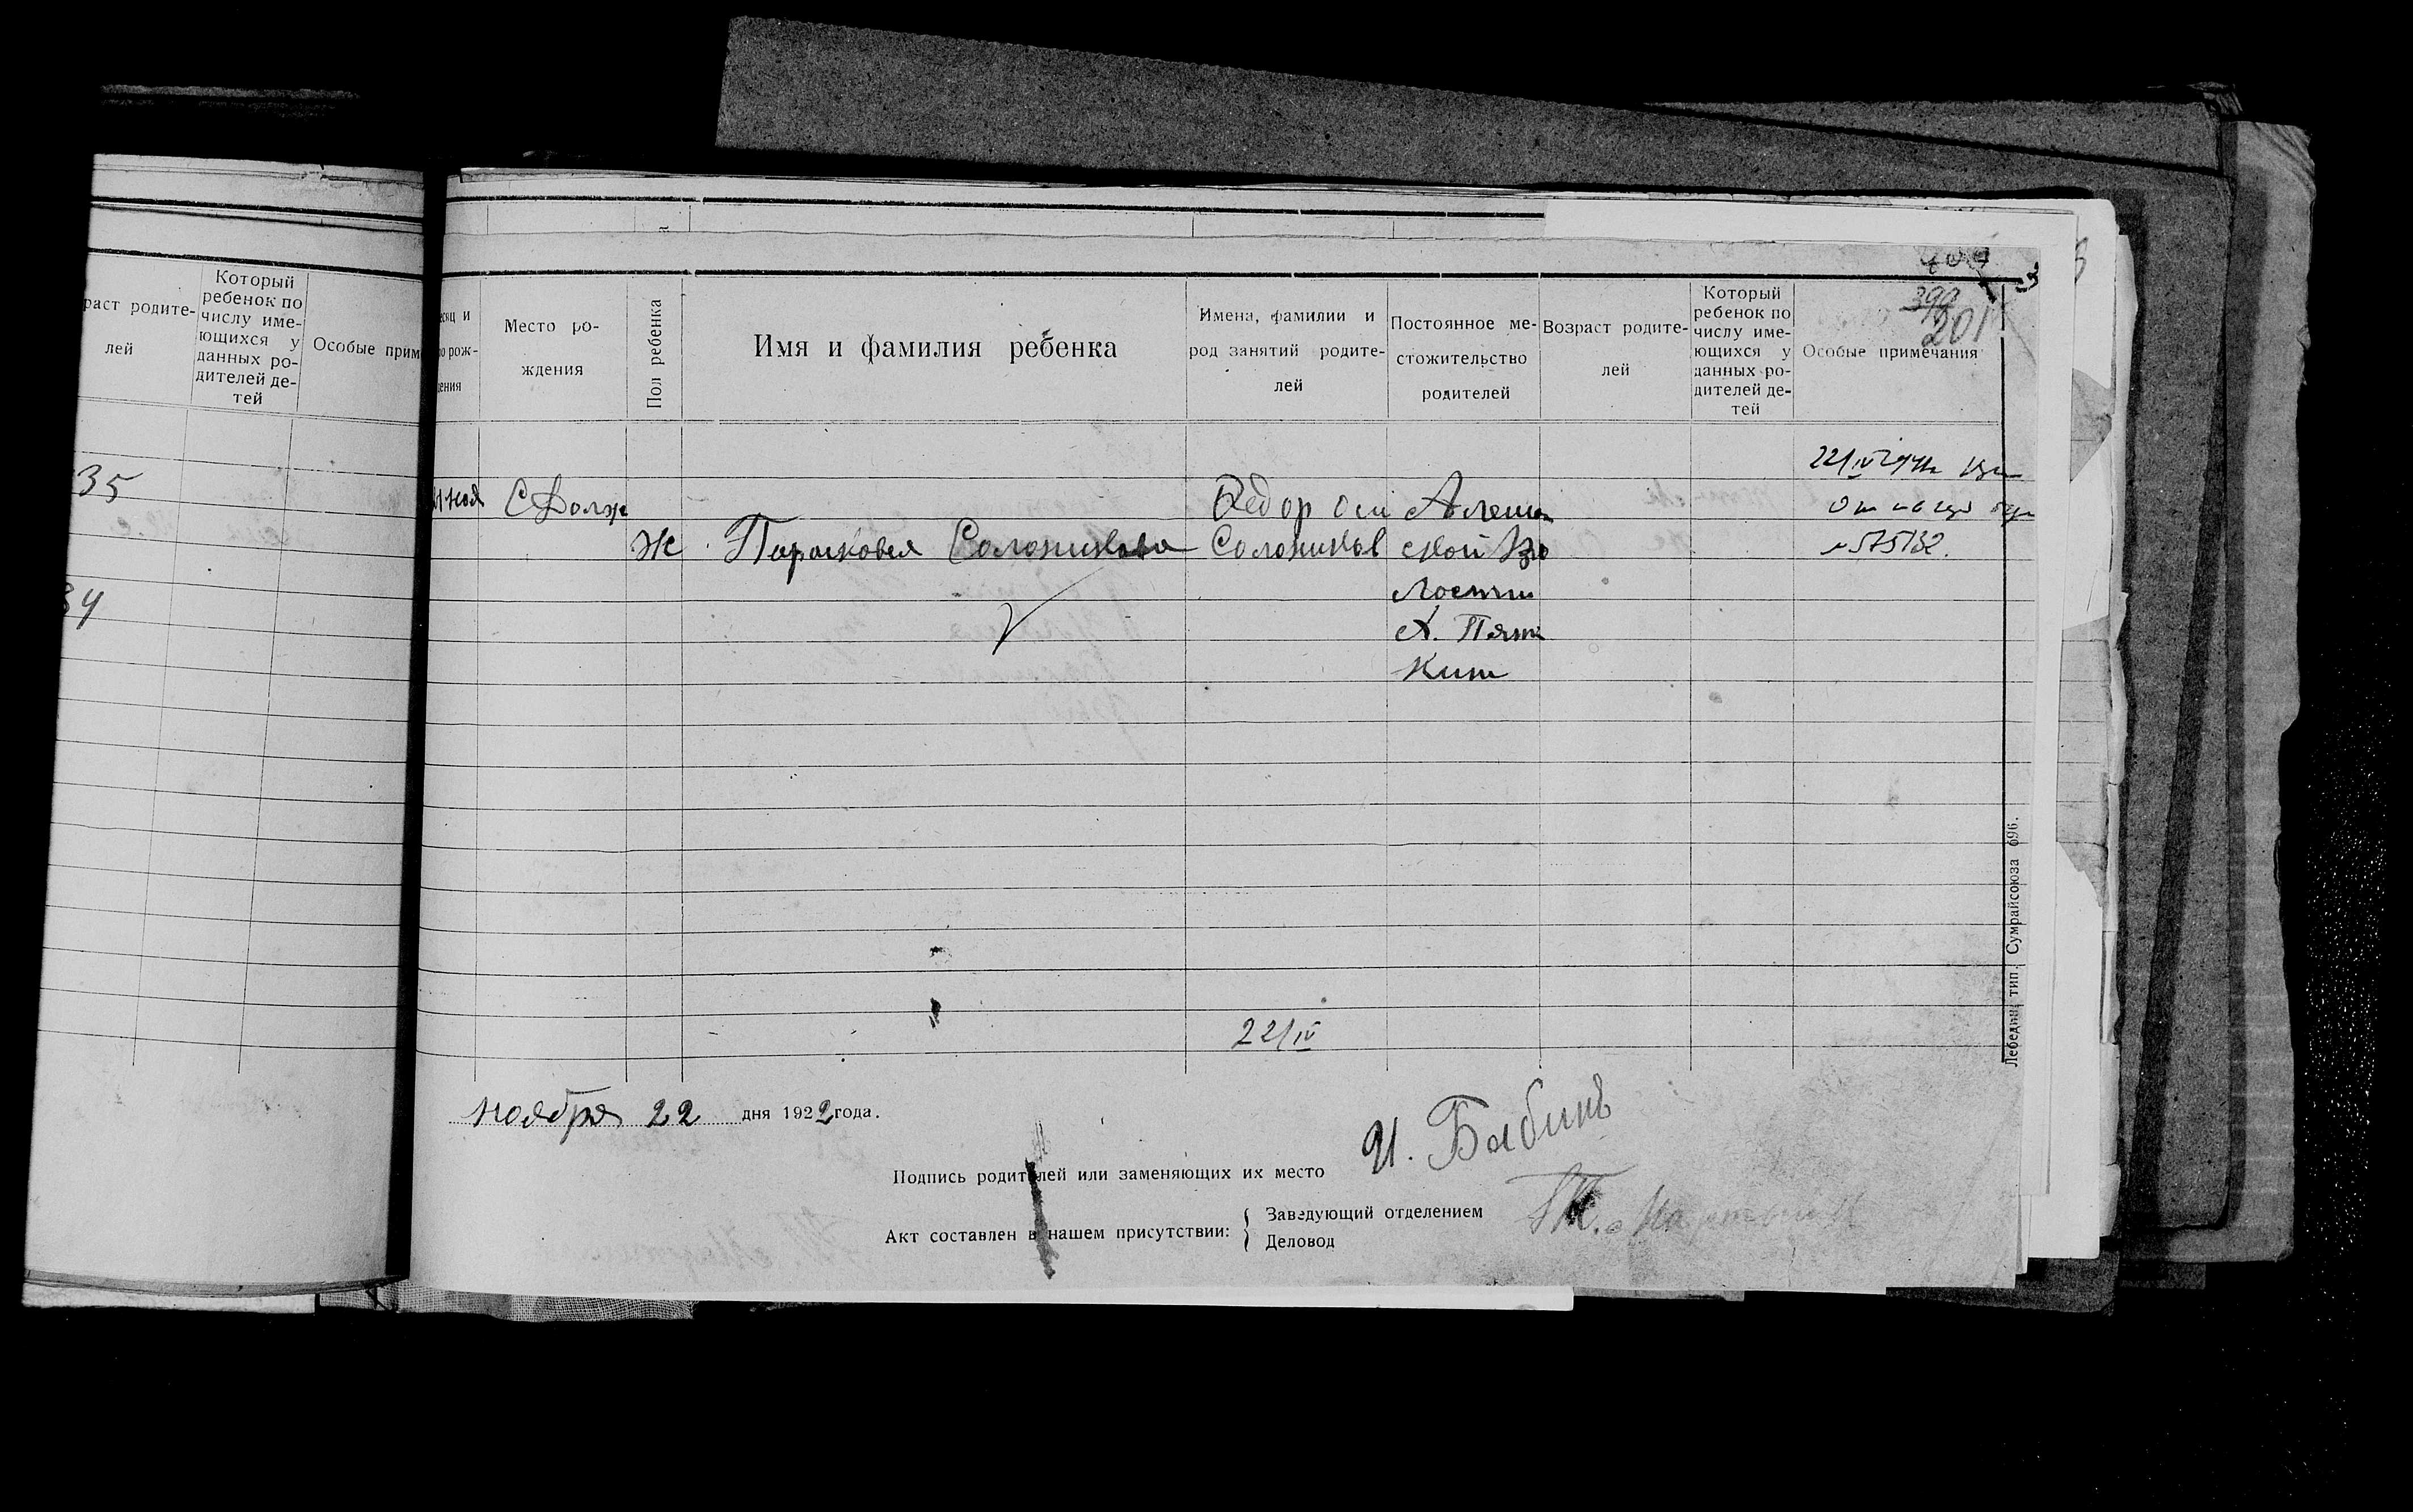 раст родите-
лей
Который
ребенок по
числу име-
ющихся у
данных ро-
дителей де-
тей
Особые прим
35
34
400
399
201
есяц и
о рож-
дения
Место ро-
ждения
Пол ребенка
Имя и фамилия ребенка
Имена, фамилии и
род занятий родите-
лей
Постоянное ме-
стожительство
родителей
Возраст родите-
лей
Который
ребенок по
числу име-
ющихся у
данных ро-
дителей де-
тей
Особые примечания
С Долж
Ж
Парасковея
Федор
Солоников
Алеш
ской Во
лости
х. Пят
кин
22/IV
№ 575132.
22/IV
ноября 22 дня 1922 года.
Подпись родителей или заменяющих их место
И. Бабинъ
Акт составлен в нашем присутствии:
Заведующий отделением
Деловод
Лебедин. тип. Сумрайсоюза 696.